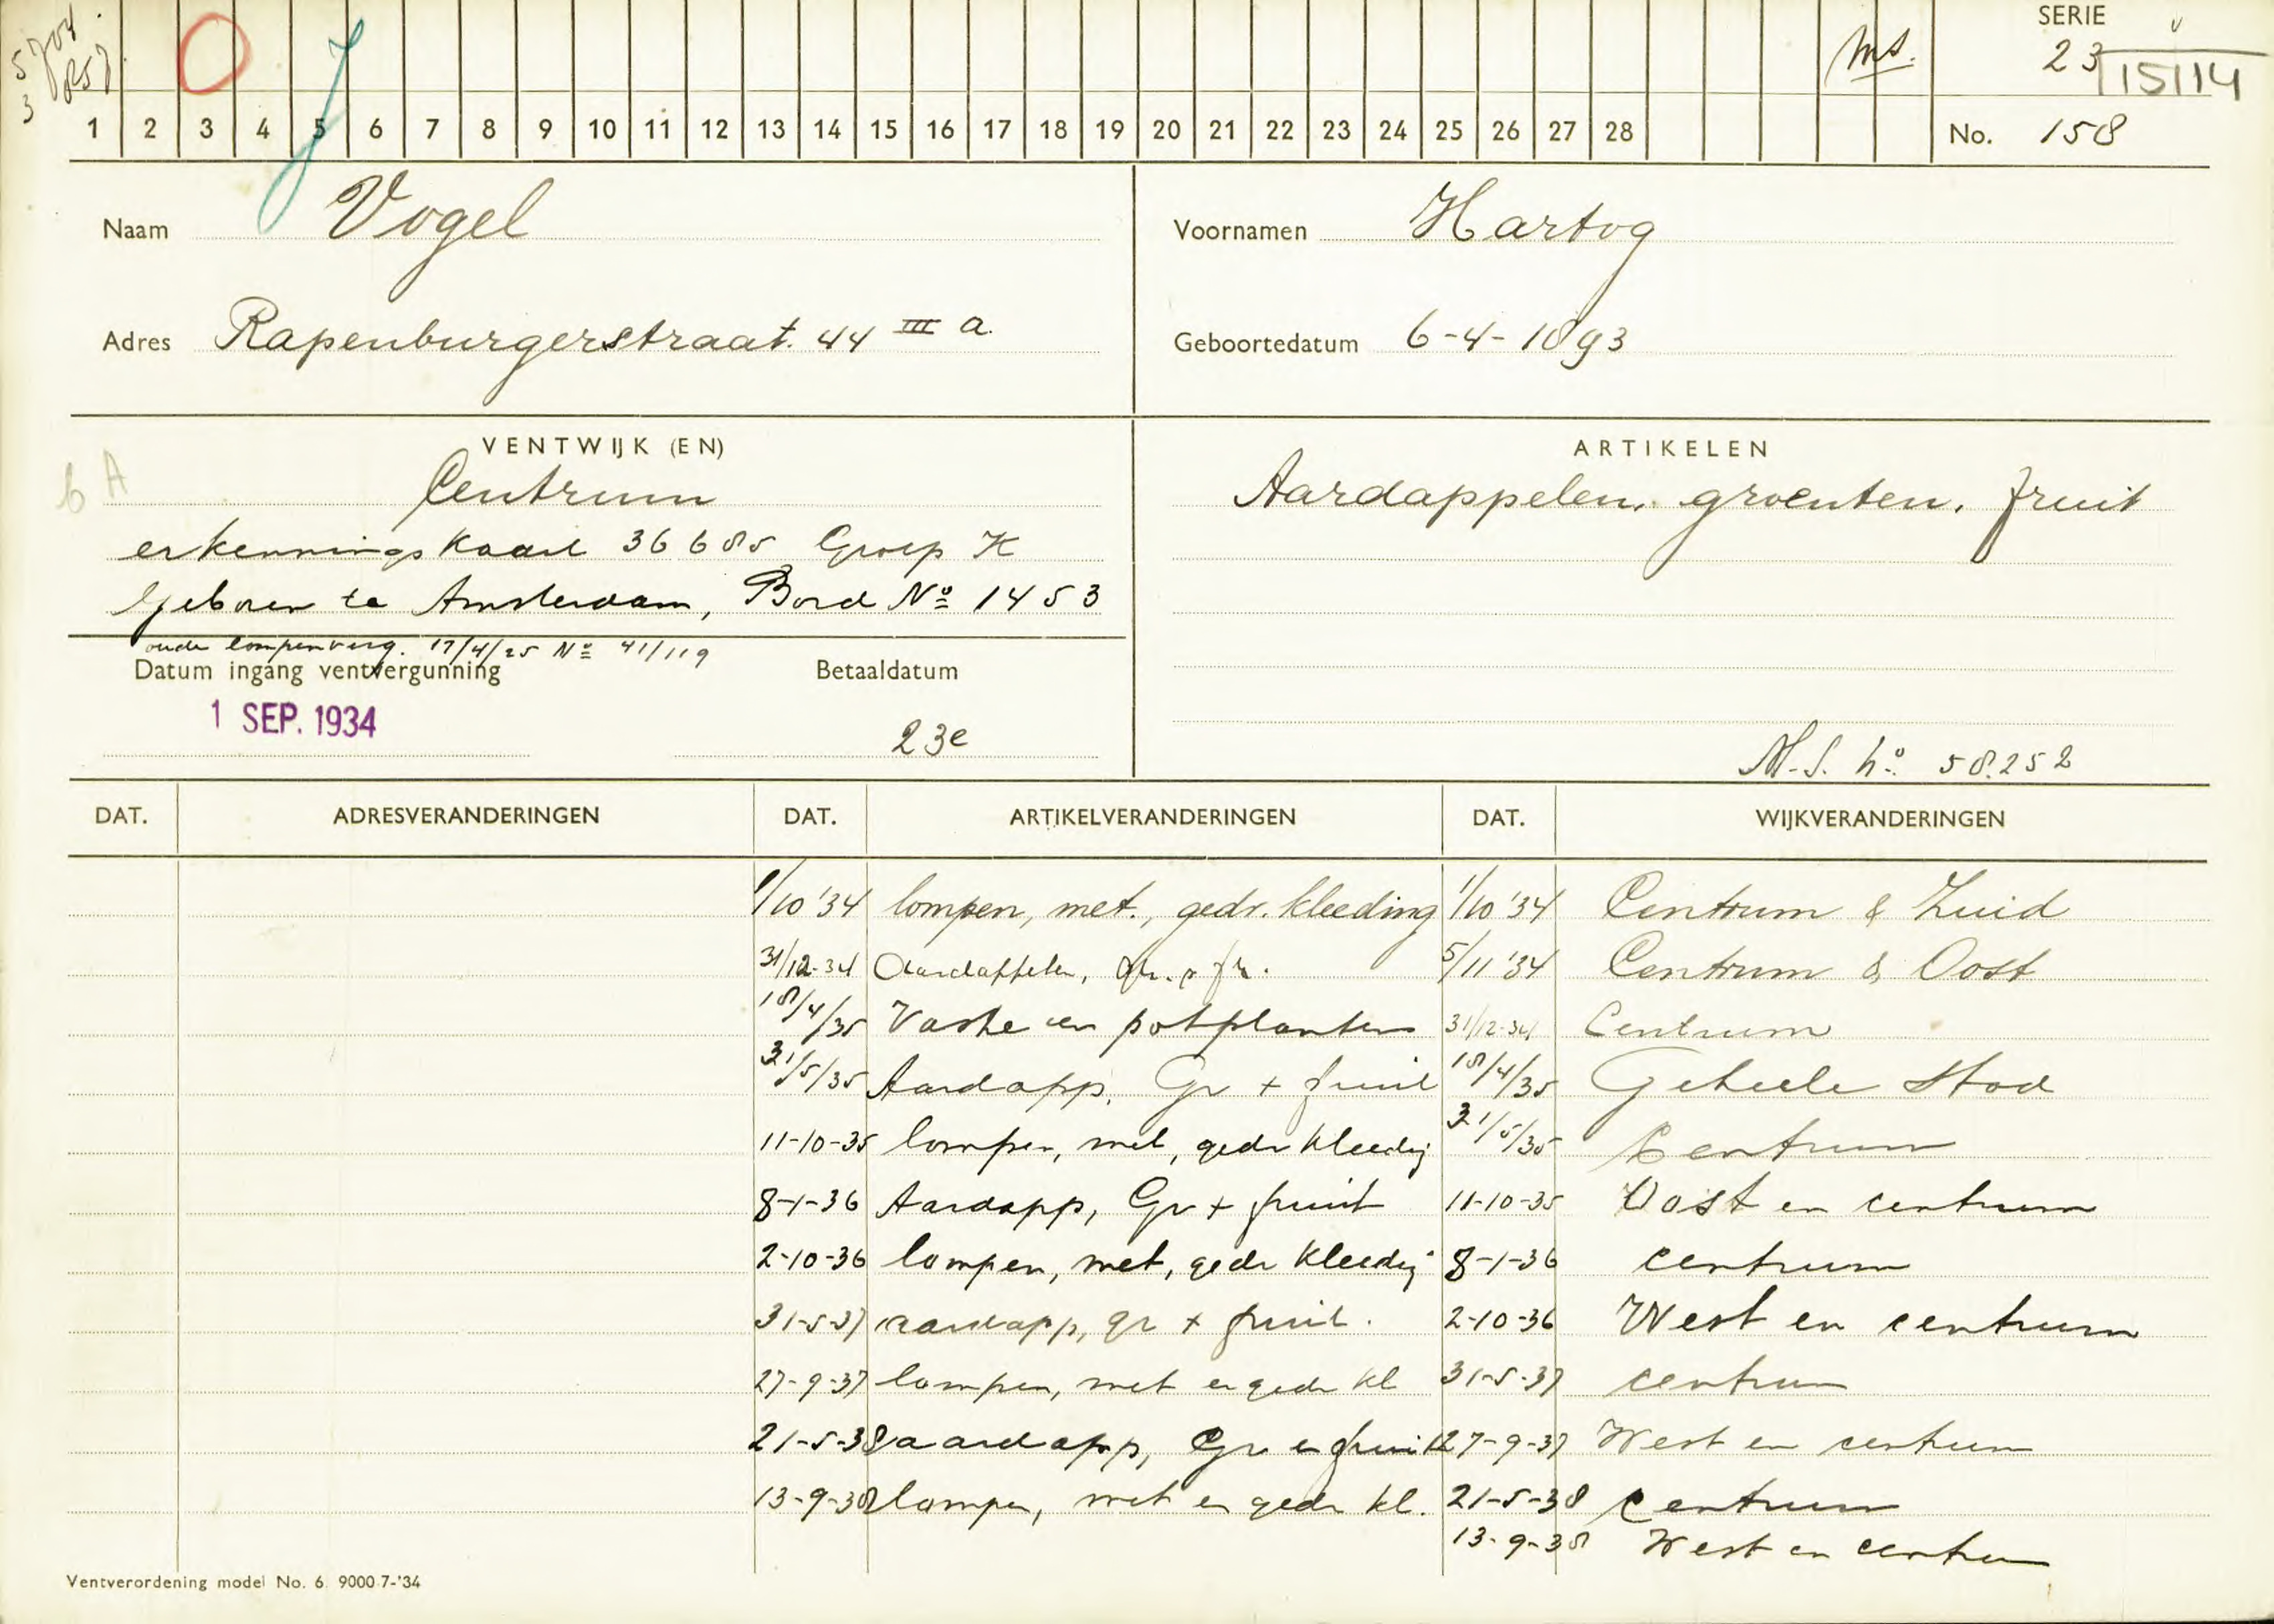 SERIE
ms. 23 15114
1 2 3 4 5 6 7 8 9 10 11 12 13 14 15 16 17 18 19 20 21 22 23 24 25 26 27 28 No. 158
J
Naam Vogel Voornamen Hartog
Adres Rapenburgerstraat. 44 III a. Geboortedatum 6-4-1893
VENTWIJK (EN) ARTIKELEN
Centrum Aardappelen. groenten. fruit
erkenningskaart 36685 Groep K
Geboren te Amsterdam, Bord No 1453
oude lompenverg. 17/4/25 No 41/119
Datum ingang ventvergunning Betaaldatum
1 SEP. 1934 23e
M.S. no. 58.252
DAT. ADRESVERANDERINGEN DAT. ARTIKELVERANDERINGEN DAT. WIJKVERANDERINGEN
1/10 '34 lompen, met., gedr. kleeding 1/10 '34 Centrum & Zuid
31/12-34 Aardappelen, Gr. & fr. 5/11 '34 Centrum & Oost
18/4/35 Vaste en potplanten 31/12-34 Centrum
31/5/35 Aardapp. Gr + fruit 18/4/35 Geheele Stad
11-10-35 lompen, met, gedr kleedij 31/5/35 Centrum
8-1-36 Aardapp, Gr + fruit 11-10-35 Oost en centrum
2-10-36 lompen, met, gedr kleedij 8-1-36 centrum
31-5-37 aardapp, gr + fruit. 2-10-36 West en centrum
27-9-37 lompen, met en gedr kl 31-5-37 centrum
21-5-38 aardapp, Gr en fruit 27-9-37 West en centrum
13-9-38 lompen, met en gedr kl. 21-5-38 Centrum
13-9-38 West en centrum
Ventverordening model No. 6. 9000.7-'34